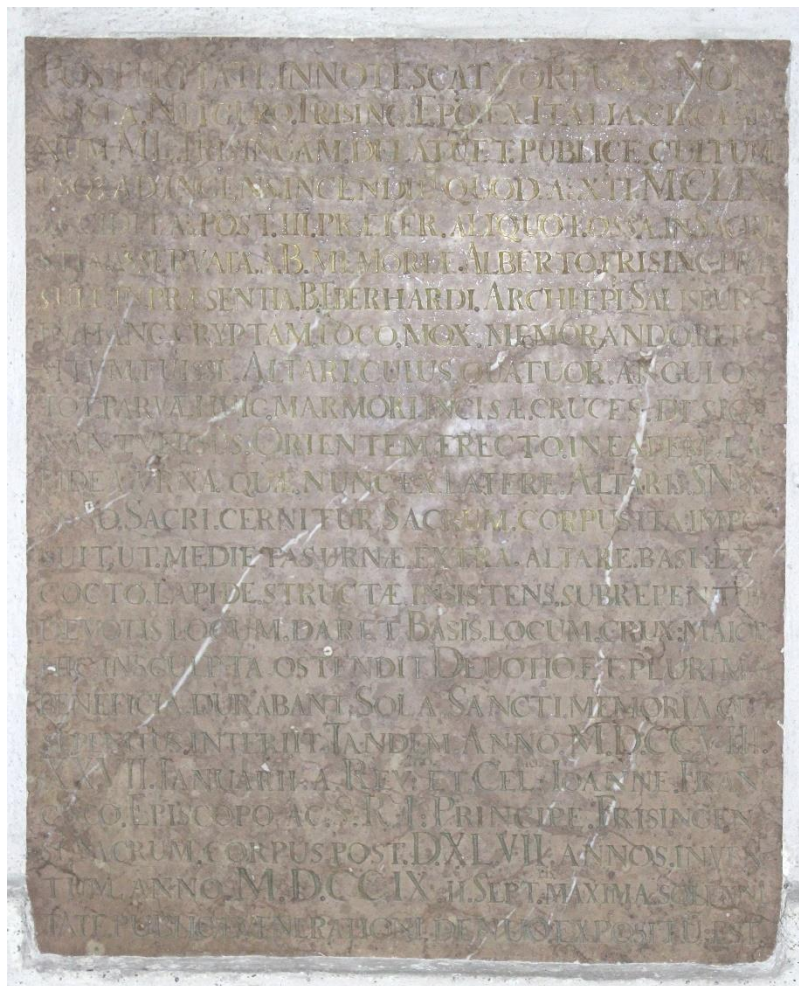 POSTERITATI.INNOTESCAT.CORPUS.S.NON
NOSI.A.NUIGERO.FRISING.EPO.EX.ITALIA.CIRCA.AN
NUM.MII.FRISINGAM.DELATU.ET.PUBLICE.CULTUM
USQ.AD.INGENS.INCENDIU.QUOD.A.XII.M.CLIX
POST.III.PRÆTER.ALIQUOT.OSSA.IN.SACRI
STIA.ASSERVATA.AB.MEMORIÆ.ALBERTO.FRISING.PRÆ
SULE.IN.PRÆSENTIA.B.EBERHARDI.ARCHIEPI.SALISBURG
IN.HANC.CRYPTAM.LOCO.MOX.MEMORANDO.REPO
SITUM.FUISSE.ALTARI.CUIUS.QUATUOR.ANGULOS
TOT.PARVÆ.HUIC.MARMORI.INCISÆ.CRUCES
ORIENTEM.ERECTO.IN.EADEM.LA
PIDEA.URNA.QUÆ.NUNC.EX.LATERE.ALTARIS.SN
SACRI.CERNITUR.SACRUM.CORPUS.ITA.IMPO
SUIT,UT.MEDIETAS.URNÆ.EXTRA.ALTARE.BASI.EX
COCTO.LAPIDE.STRUCTÆ.INSISTENS.SUBREPENTIB
DEVOTIS LOCUM.DARET.BASIS.LOCUM.CRUX.MAIOR
HIC INSCULPTA.OSTENDIT.DEUOTIO.ET.PLURIMA
BENEFICIA.DURABANT.SOLA.SANCTI.MEMORIA
REPENTIUS.INTERIIT.TANDEM.ANNO.M.D.CCVIII
XXVII.IANUARII.A.REV: ET CEL: IOANNE.FRAN
CISCO.EPISCOPO.AC.S.R.I.PRINCIPE.FRISINGEN
SI.SACRUM.CORPUS POST.DXLVII.ANNOS.INVEN
TUM.ANNO.M.D.CCIX.II.SEPT.MAXIMA.SOLENNI
TATE.PUBLICÆ.VENERATIONI.DENUO.EXPOSITU.EST